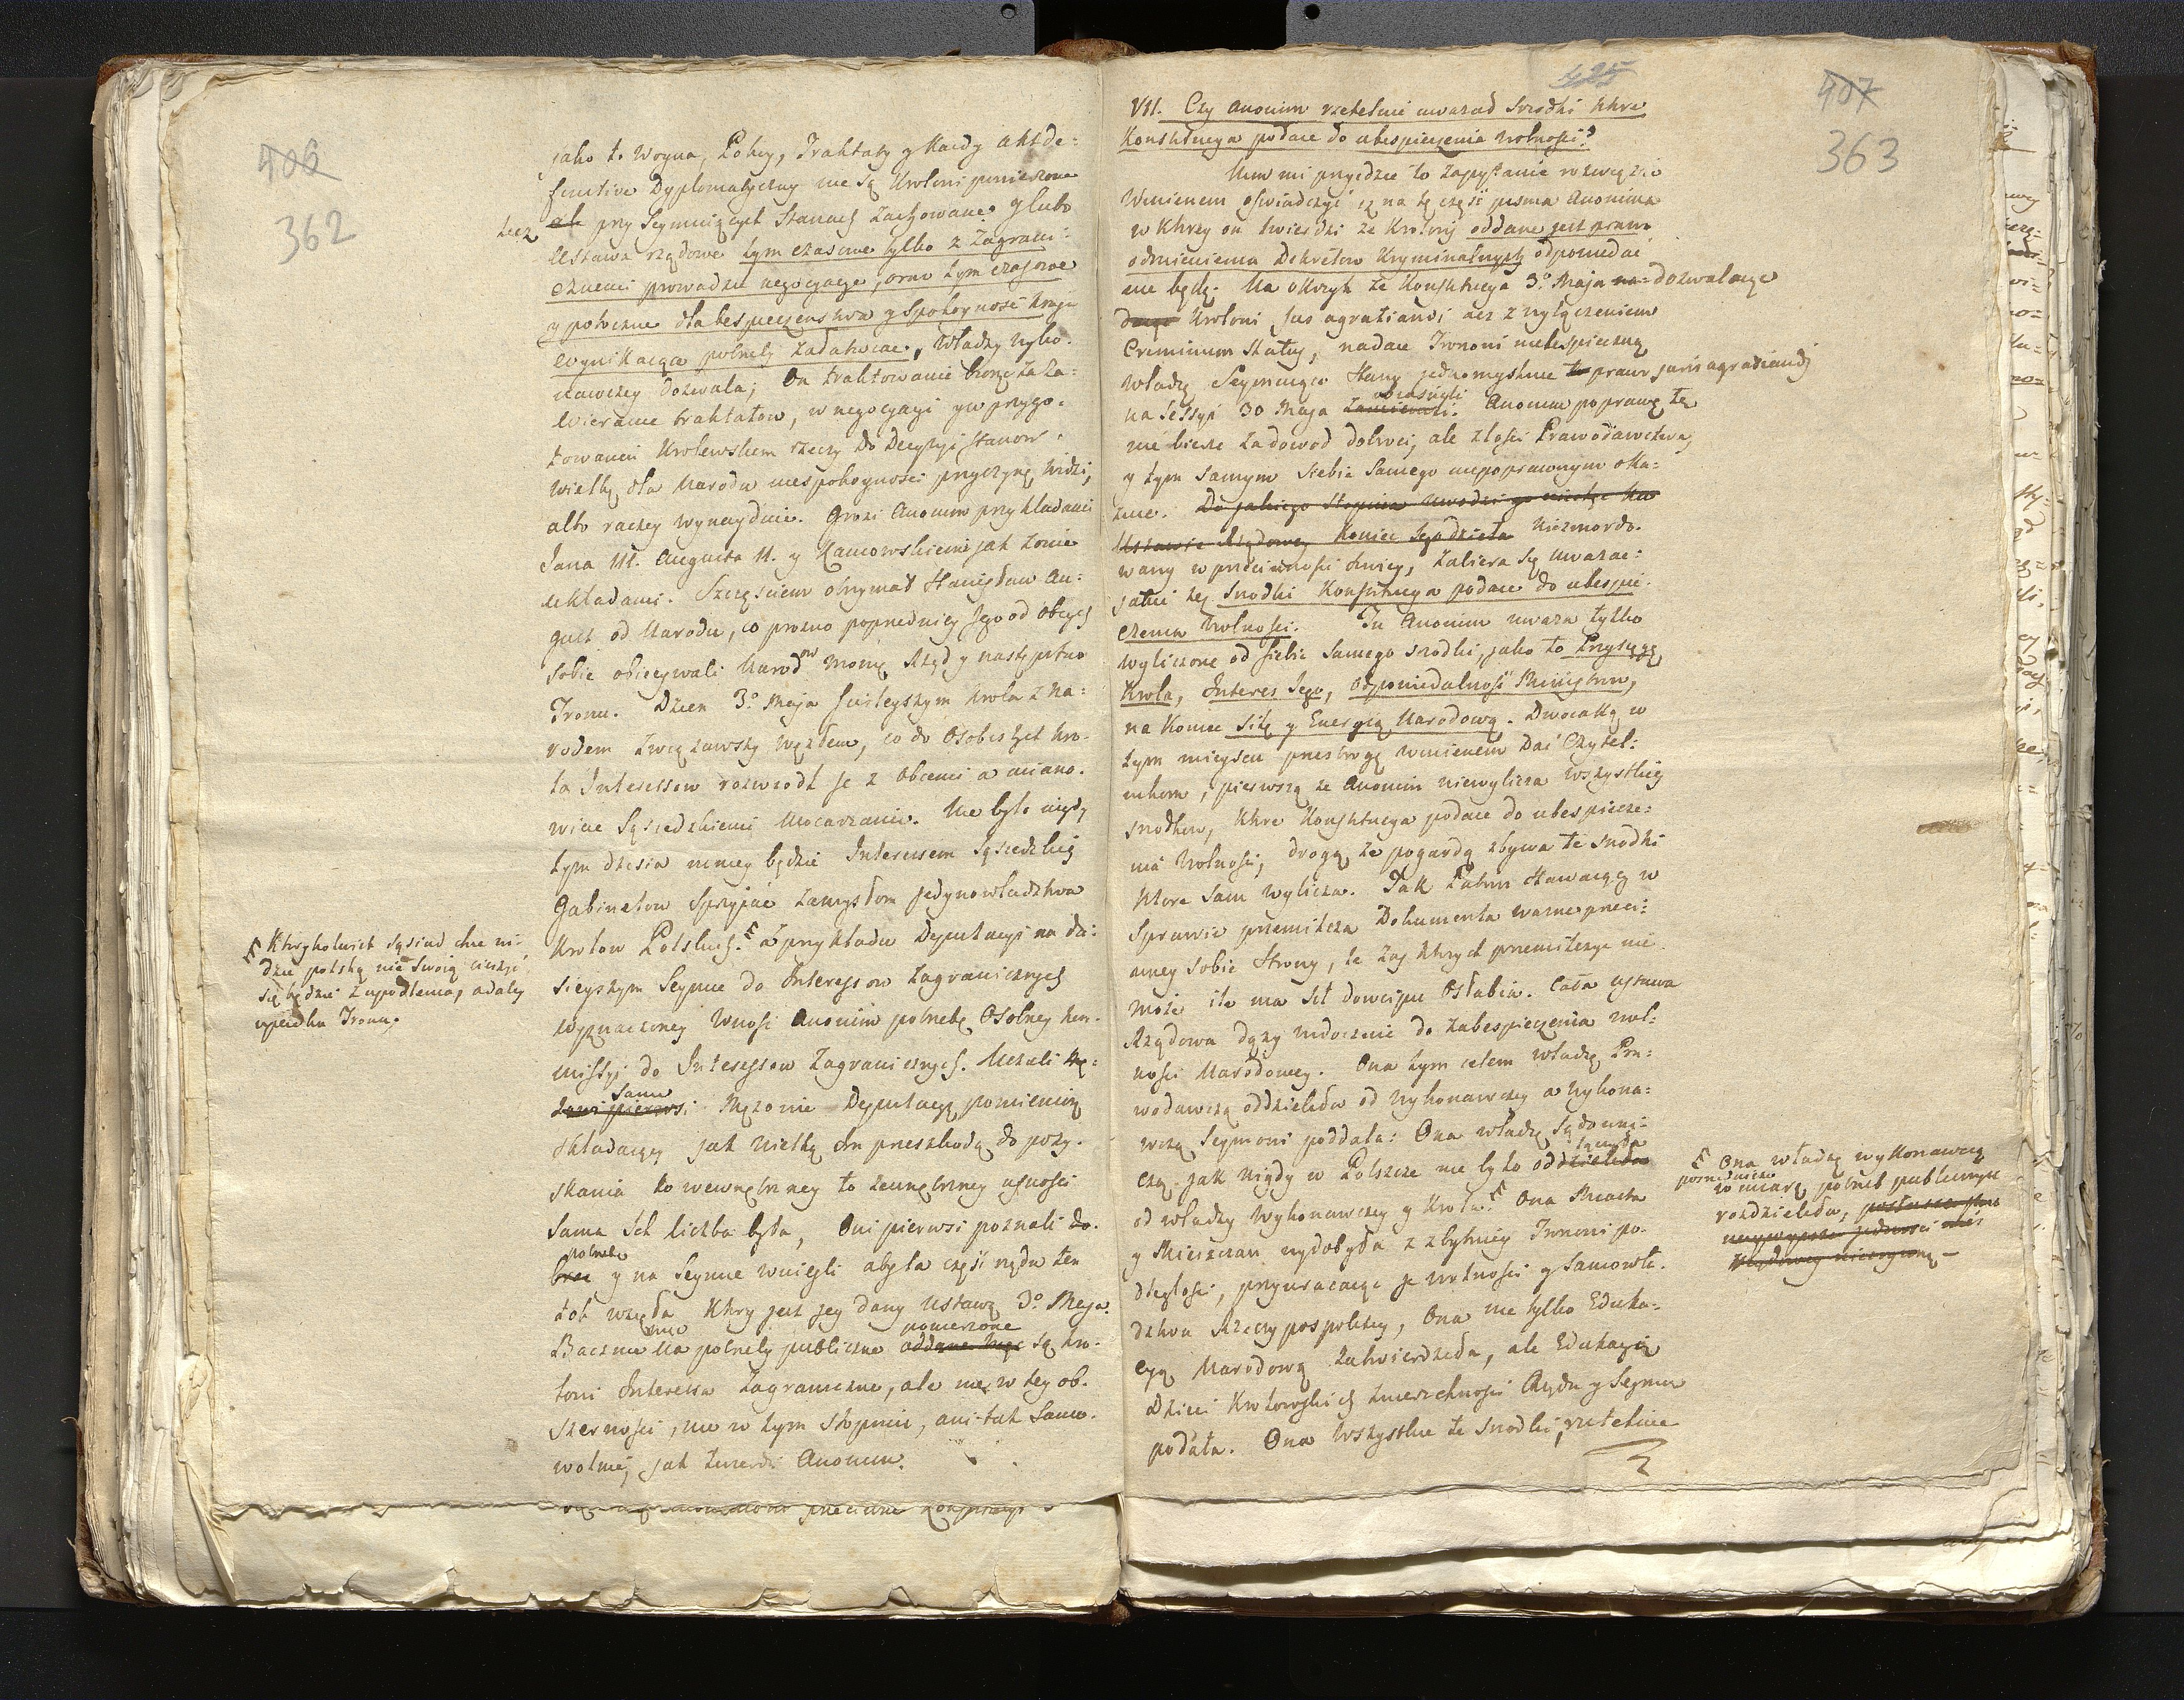 406
362
jako to Woyna, Pokoy, Traktaty y Każdy akt de=
finitive Dyplomatyczny nie są Krolowi powierzone
lecz ale przy Seymuiących Stanach Zachowane y lubo
Ustawa rządowa tym czasowe tylko z Zagrani=
cznemi prowadzić negocyacye, oraz tym czasowe
y potoczne dla bespieczenstwa y Spokoyności kraiu
wynikaiące potrzeby załatwiac, władzy wyko=
nawczey dozwala; On traktowanie bierze za za=
wieranie traktatow, w negocyacyi y w przygo=
towaniu Krolewskiem rzeczy do Decyzyi stanow,
wielką dla Narodu niespokoyności przyczynę widzi,
albo raczey wynayduie. Grozi Anonim przykładami
Jana III. Augusta II. y
układami. Szczęściem otrzymał Stanisław Au=
gust od Narodu, co prozno poprzednicy Jego od obcych
sobie obiecywali Narodow moznę Rząd y następstwo
Tronu. Dzien 3º Maja scisleyszym krola z Na=
rodem związawszy węzłem, co do Osobistych kro=
la Interessow rozwiodł je z obcemi a miano=
wicie Sąsiedzkiemi Mocarzami. Nie było nigdy
tym dzisia mniey będzie Interessem Sąsiedzkich
Gabinetow Sprzyiać zamysłom jedynowładztwa
Krolow Polskich. a przykładu Deputacyi na dzi=
sieyszym Seymie do Interessow Zagranicznych
wyznaczoney wnosi Anonim potrzebę Osobney kom=
missyi do Interessow Zagranicznych. Uczuli
sami pierwsi Mężowie Deputacyę pomienioną
składaiący jak wielką przeszkodą do pozy=
skania to wewnętrzney to zewnętrzney ufności
sama Ich liczba była, Oni pierwsi poznali
potrzebę y na Seymie wnieśli aby ta część rządu ten
tok wzięła który jest jey dany Ustawą 3º Maja.
Baczne na potrzeby publiczne oddane powierzone są kro=
lowi Interessa Zagraniczne, ale nie w tey ob=
szerności, nie w tym stopniu, ani tak samo=
wolnie, jak twierdzi Anonim.
Ktorykolwiek sąsiad chce wi=
dzieć polskę nie swoią cieszyć
się będzie z upodlenia, a daley
upadku Tronu.
425
407
363
VII. Czy Anonim rzetelnie uwazał srzodki ktore
Konstytucya podaie do ubespieczenia wolności?
Nim mi przyidzie to zapytanie rozwiązać
winienem oświadczyć iż na tę część pisma Anonima
w ktorey on twierdzi że Krolowi oddane jest prawo
odmienienia Dekretow Kryminalnych odpowiedać
nie będę. Na okrzyk że Konstytucya 3º Maja na=dozwalaiąc
Krolowi jus agratiandi acz z wyłączeniem
Criminum Status, nadaie Tronowi niebespieczną
władzę Seymuiące Stany jednomyślnie to prawo juris agratiandi
na Sessyi 30 Maja obiaśniły. Anonim poprawę tę
nie bierze za dowod dobroci, ale złości Prawodawstwa,
y tym samym siebie samego niepoprawnym oka=
zuie. Do jakiego stopnia uwodzi go niechęć ku
Ustawie Rządowey koniec Jego dzieła Niezmordo=
wany w przeciwności swiey, zabiera się uwazac
jakie są Srzodki Konstytucya podaie do ubespie=
czenia wolności. Tu Anonim uwaza tylko
wyliczone od siebie samego srzodki, jako to Przysięgę
Krola, Interes Jego, Odpowiedalność Ministrow,
na koniec siłę y Energią Narodową. Dwoiaką w
tym mieyscu przestrogę winienem dać Czytel=
nikom, pierwszą że Anonim niewylicza wszystkich
srzodkow, ktore Konstytucya podaie do ubespiecze=
nia wolności, drugą że pogardą zbywa te srzodki
ktore sam wylicza. Jak Patron stawaiący w
Sprawie przemilcza Dokumenta wazne przeci=
wney sobie Strony, te zaś ktorych przemilczyć nie
może ile ma sił dowcipu osłabia. Cała ustawa
Rządowa dązy widocznie do zabespieczenia wol=
ności Narodowey. Ona tym celem władzę Pra=
wodawczą oddzieliła od wykonawczey a wykona=
wczą Seymowi poddała: Ona władzę sądowni=
czą jak nigdy w Polszcze nie było oddzieliła
od władzy wykonawczey y Krola. Ona Miasta
y Mieszczan wydobyła z zbytniey Tronowi po=
dległości, przywracaiąc je wolności y Samowła=
dztwu Rzeczypospolitey, Ona nie tylko Eduka=
cyą Narodową zatwierdziła, ale Edukacyią
Dzieci Krolowskich zwierzchności Rządu y Seymu
podała. Ona wszystkie te srzodki, rzetelnie
Ona władzę wykonawczą
w miarę potrzeb publicznych
rozdzieliła,